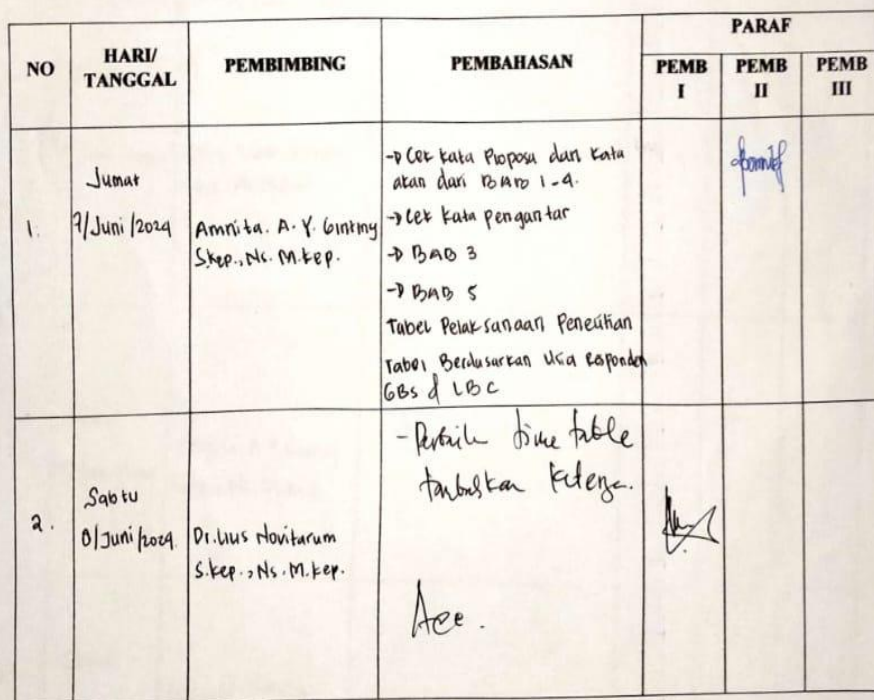 NO
HARI/
TANGGAL
PEMBIMBING
PEMBAHASAN
PARAF
PEMB
I
PEMB
II
PEMB
III
1.
Jumat
7/Juni/2024
Amnita. A. Y. Ginting
S.kep., Ns. M.kep.
→ Cek kata Proposa dan kata
akan dari BAB 1-4.
→ Cek kata pengantar
→ BAB 3
→ BAB 5
Tabel Pelaksanaan Penelitian
Tabel Berdasarkan Usia Responden
GBS & LBC
2.
Sabtu
8/Juni/2024
Dr. Lilis Novitarum
S.kep., Ns. M.kep.
- Perbaiki time table
tambahkan
Acc.